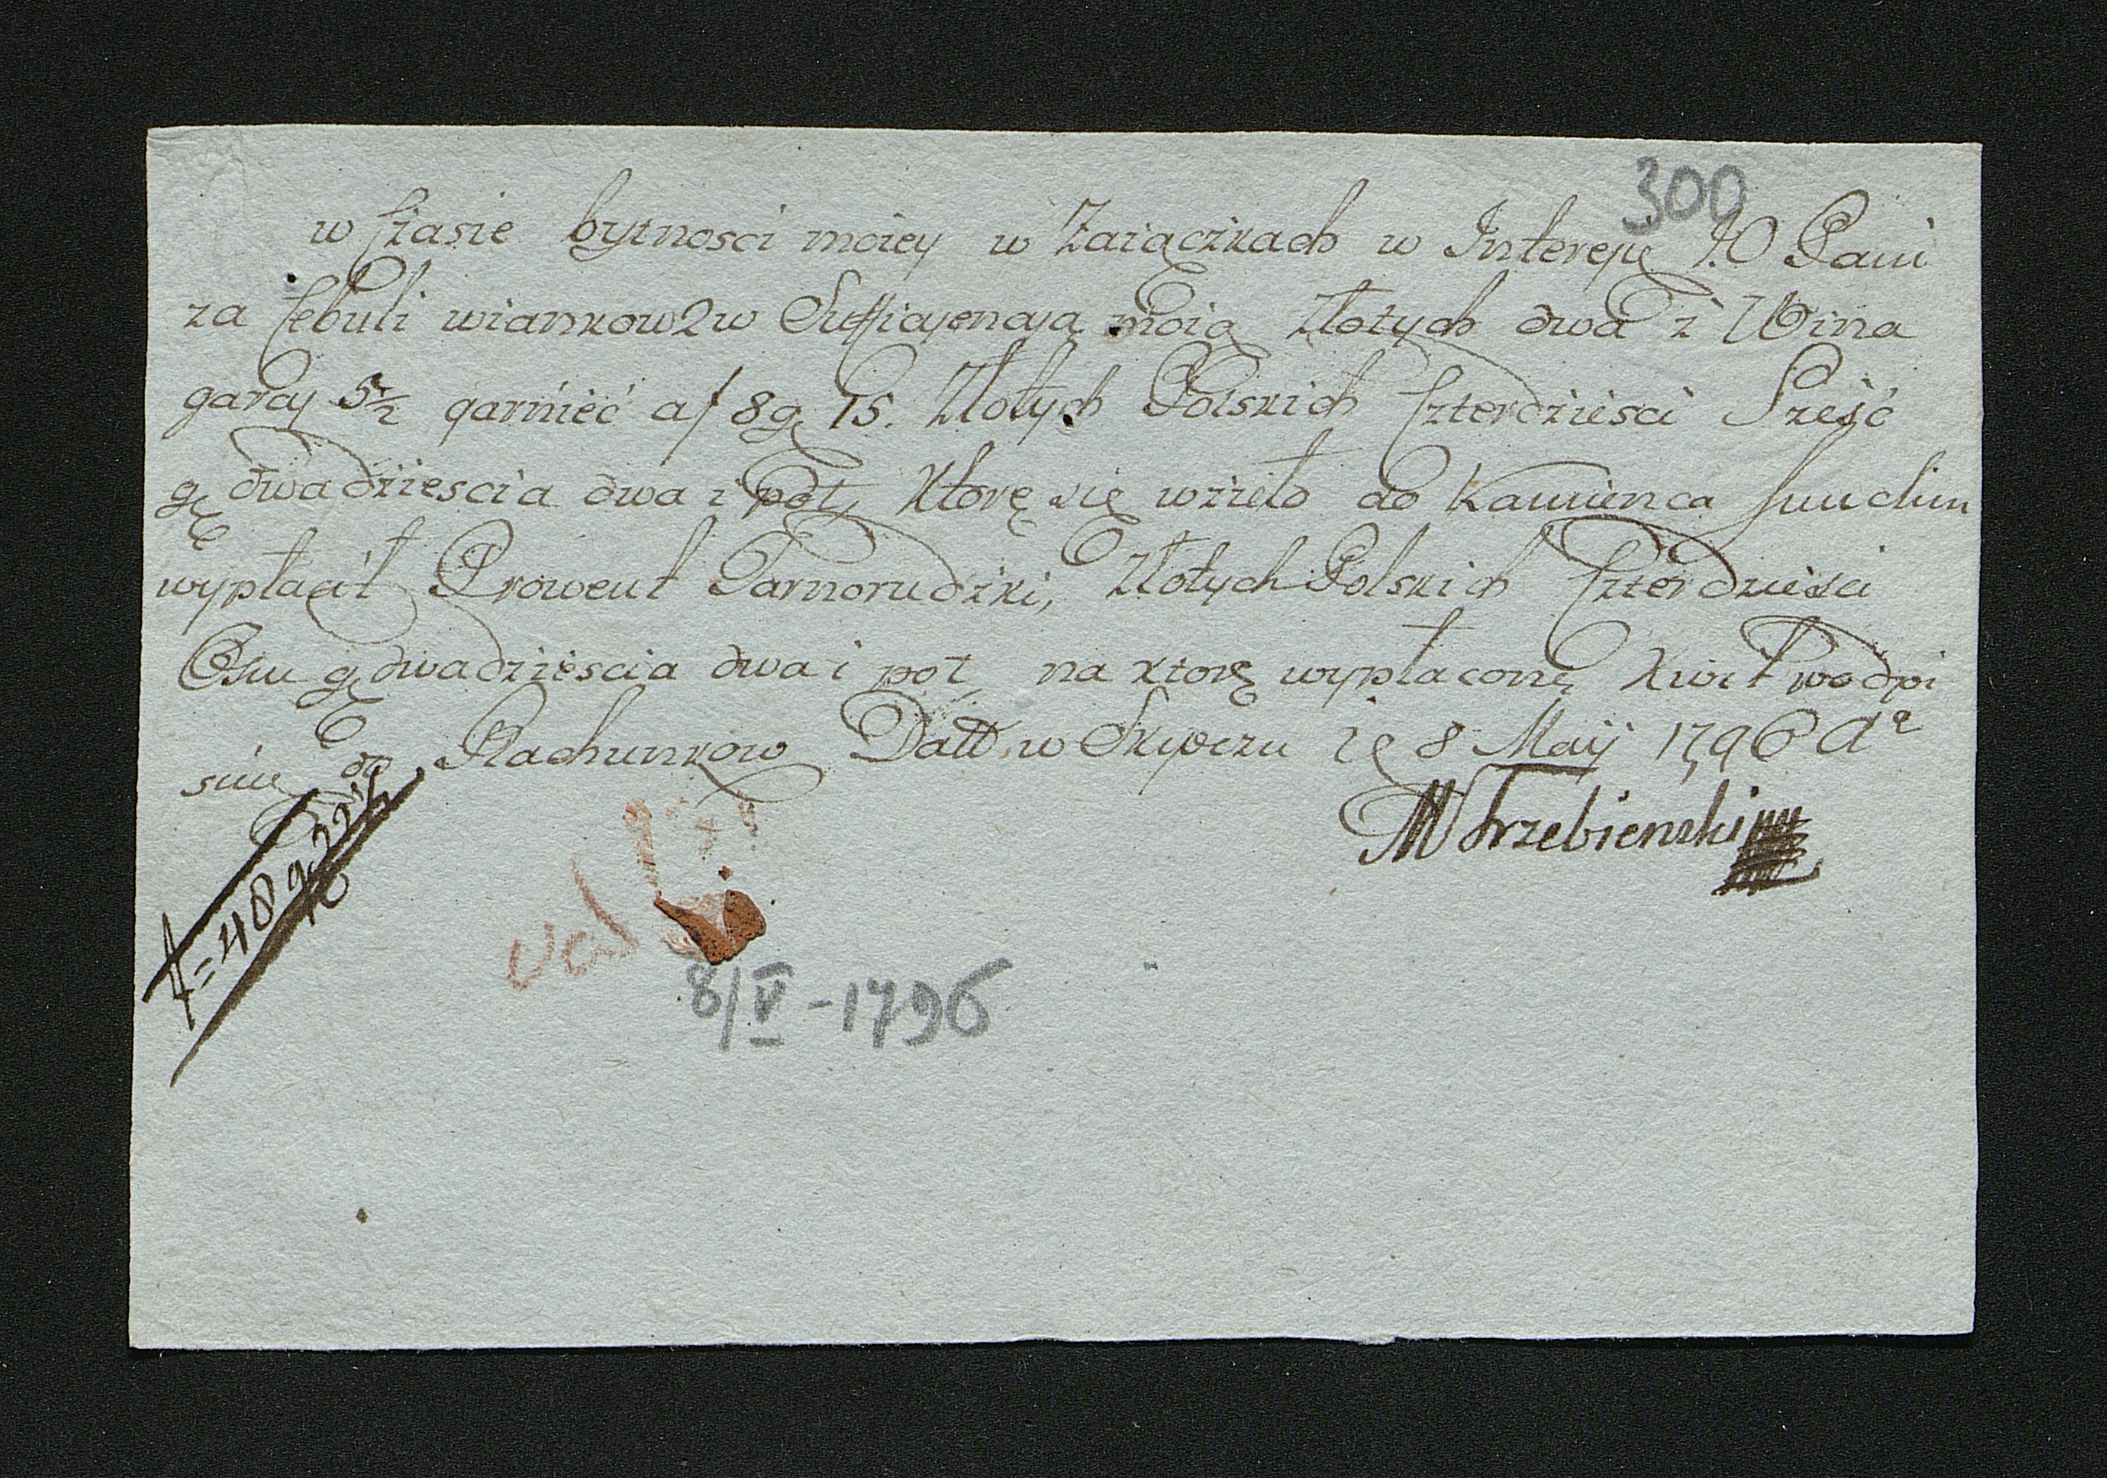 300
w Czasie bytnosci moiey w Zaiączkach w Interesie J.O Pani
za Cebuli wiankow 2 w moią Złotych dwa i Wina
garcy 5½ garniéc a f 8 g 15. Złotych Polskich Czterdziesci Sześć
g dwadziescia dwa i poł, Ktorę się wzieło do Kamienca Summa
wypłacił Prowent Tarnorudzki, Złotych Polskich Czterdziesci
Osm g dwadziescia dwa i poł, na ktorę wypłaconę Kwit podpi
suię do Rachunkow Datt w Skipczu 8 Maij 1796 Aº
MTrzebienski mp
f=48 g 22½
val
8/V - 1796